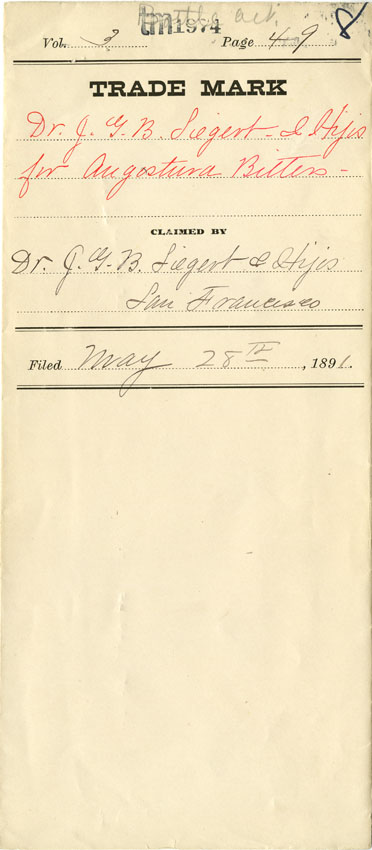 Bottle act.
tm1974
8
Vol. 3 Page 49
TRADE MARK
Dr. J. G. B. Siegert & Hijos
for Angostura Bitters -
CLAIMED BY
Dr. J. G. B. Siegert & Hijos
San Francisco
Filed May 28TH, 1891.